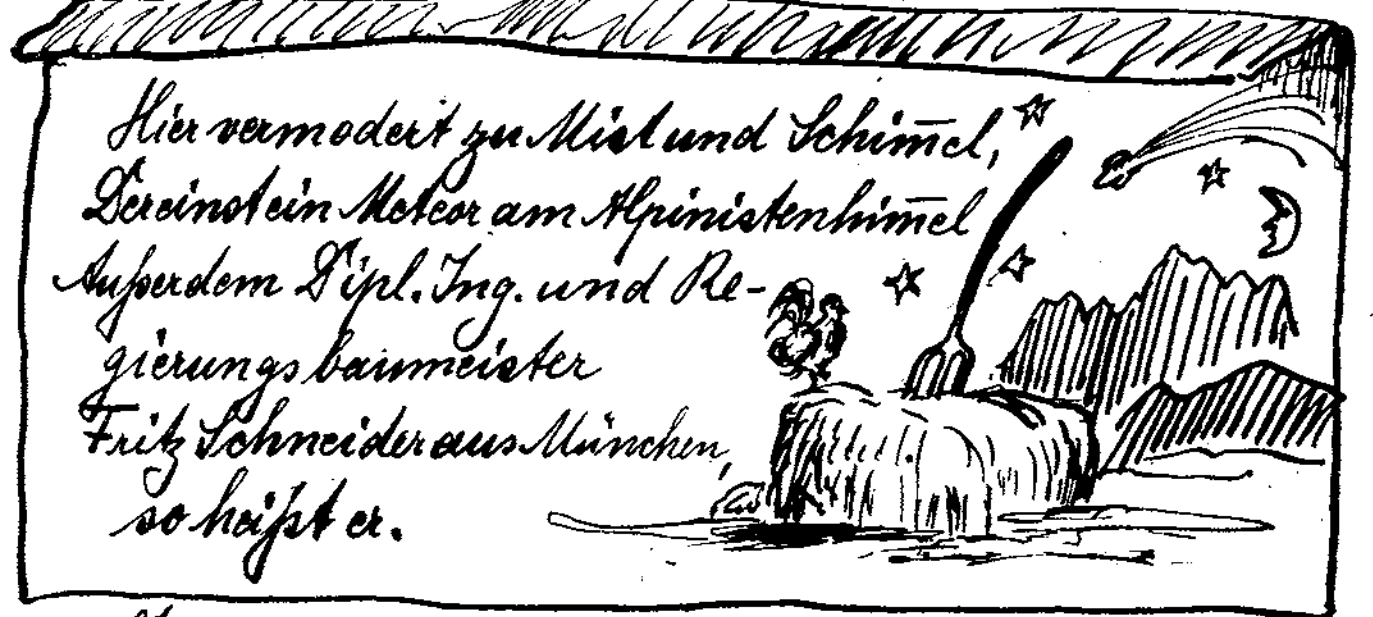 Hier vermodert zu Mist und Schim̅el,
Dereinst ein Meteor am Alpinistenhim̅el
Außerdem Dipl. Ing. und Re-
gierungsbaumeister
Fritz Schneider aus München,
so heißt er.